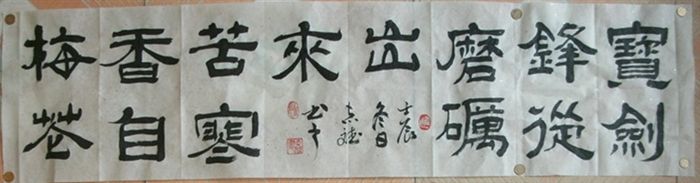 寶劍
鋒從
磨礪
出
梅花
香自
苦寒
來
壬辰
冬日